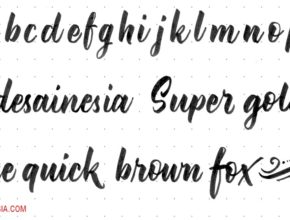 bcdefghijklmnop
desainesia Super gol
e quick brown fox
SIA.COM